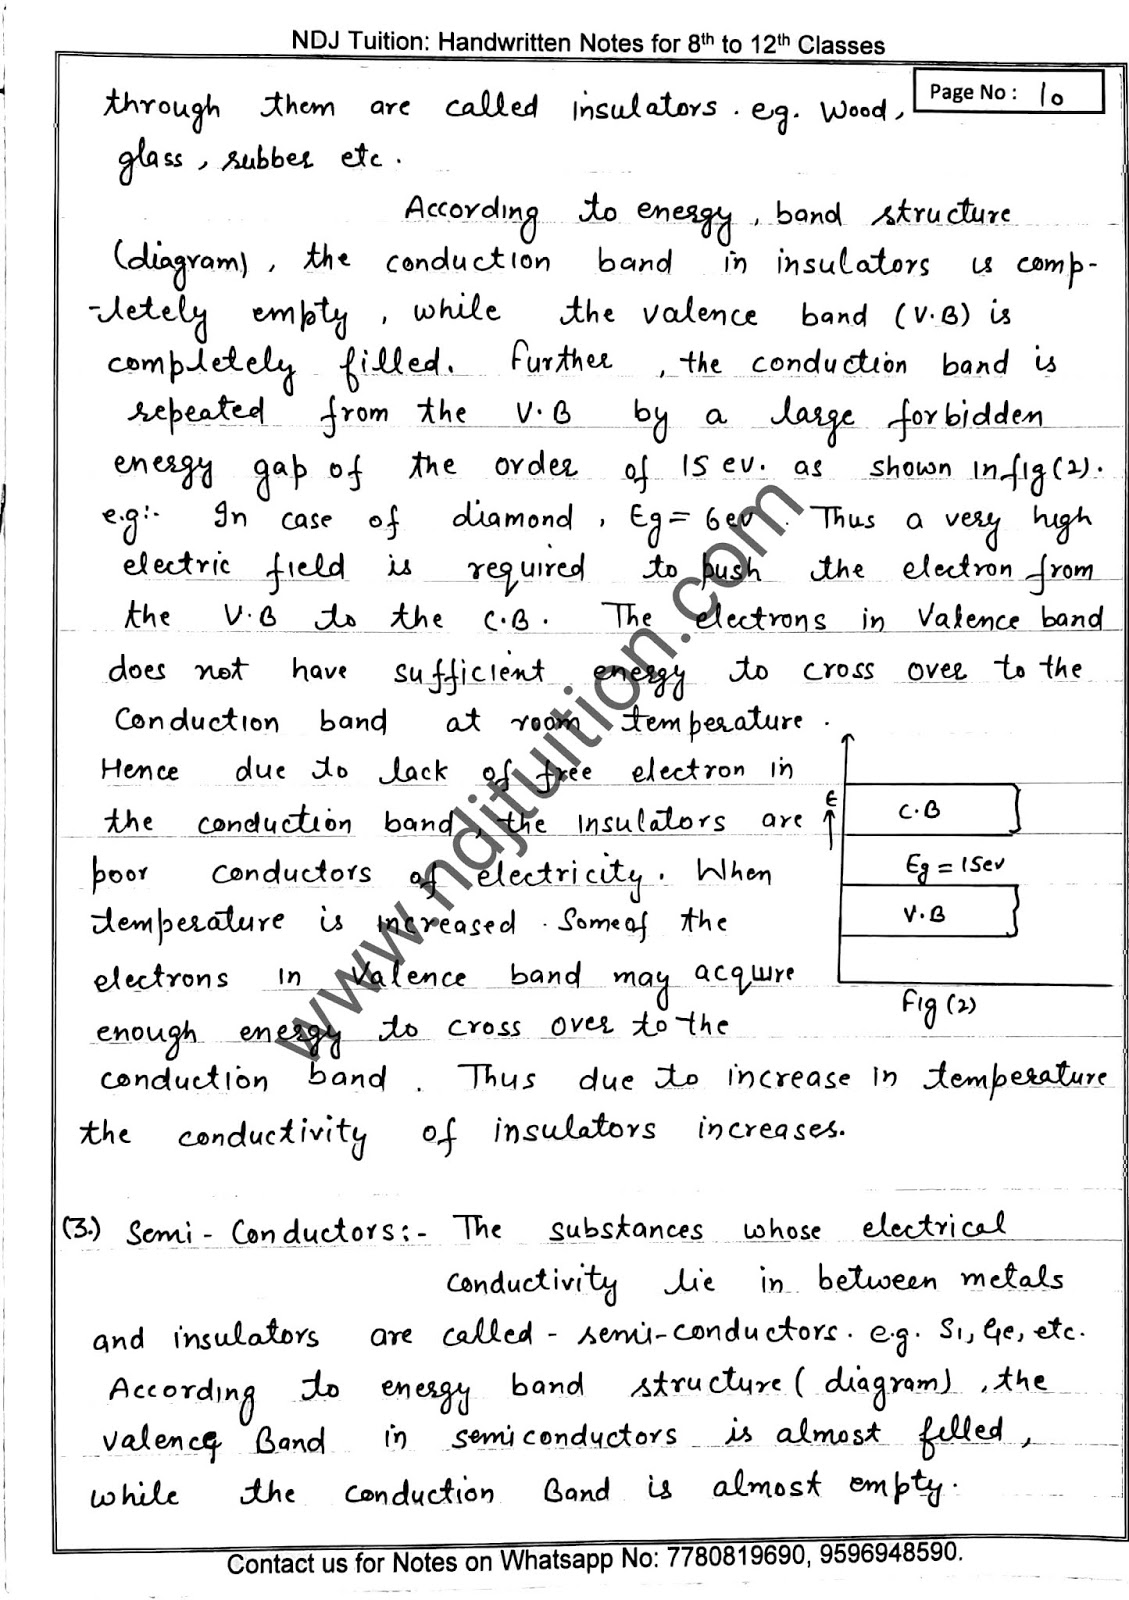 NDJ Tuition: Handwritten Notes for 8th to 12th Classes
Page No : 10
through them are called insulators. e.g. Wood,
glass, rubber etc.
According to energy, band structure
(diagram), the conduction band in insulators is comp-
-letely empty, while the valence band (V.B) is
completely filled. Further, the conduction band is
repeated from the V.B by a large forbidden
energy gap of the order of 15 ev. as shown in fig (2).
e.g:- In case of diamond, Eg = 6ev. Thus a very high
electric field is required to push the electron from
the V.B to the C.B. The electrons in Valence band
does not have sufficient energy to cross over to the
Conduction band at room temperature.
Hence due to lack of free electron in
the conduction band, the insulators are
poor conductors of electricity. When
temperature is increased. Some of the
electrons in Valence band may acquire
enough energy to cross over to the
conduction band. Thus due to increase in temperature
the conductivity of insulators increases.
E
C.B
Eg = 15ev
V.B
Fig (2)
(3.) Semi-Conductors:- The substances whose electrical
conductivity lie in between metals
and insulators are called - semi-conductors. e.g. Si, Ge, etc.
According to energy band structure (diagram), the
valence Band in semiconductors is almost filled,
while the conduction Band is almost empty.
www.ndjtuition.com
Contact us for Notes on Whatsapp No: 7780819690, 9596948590.